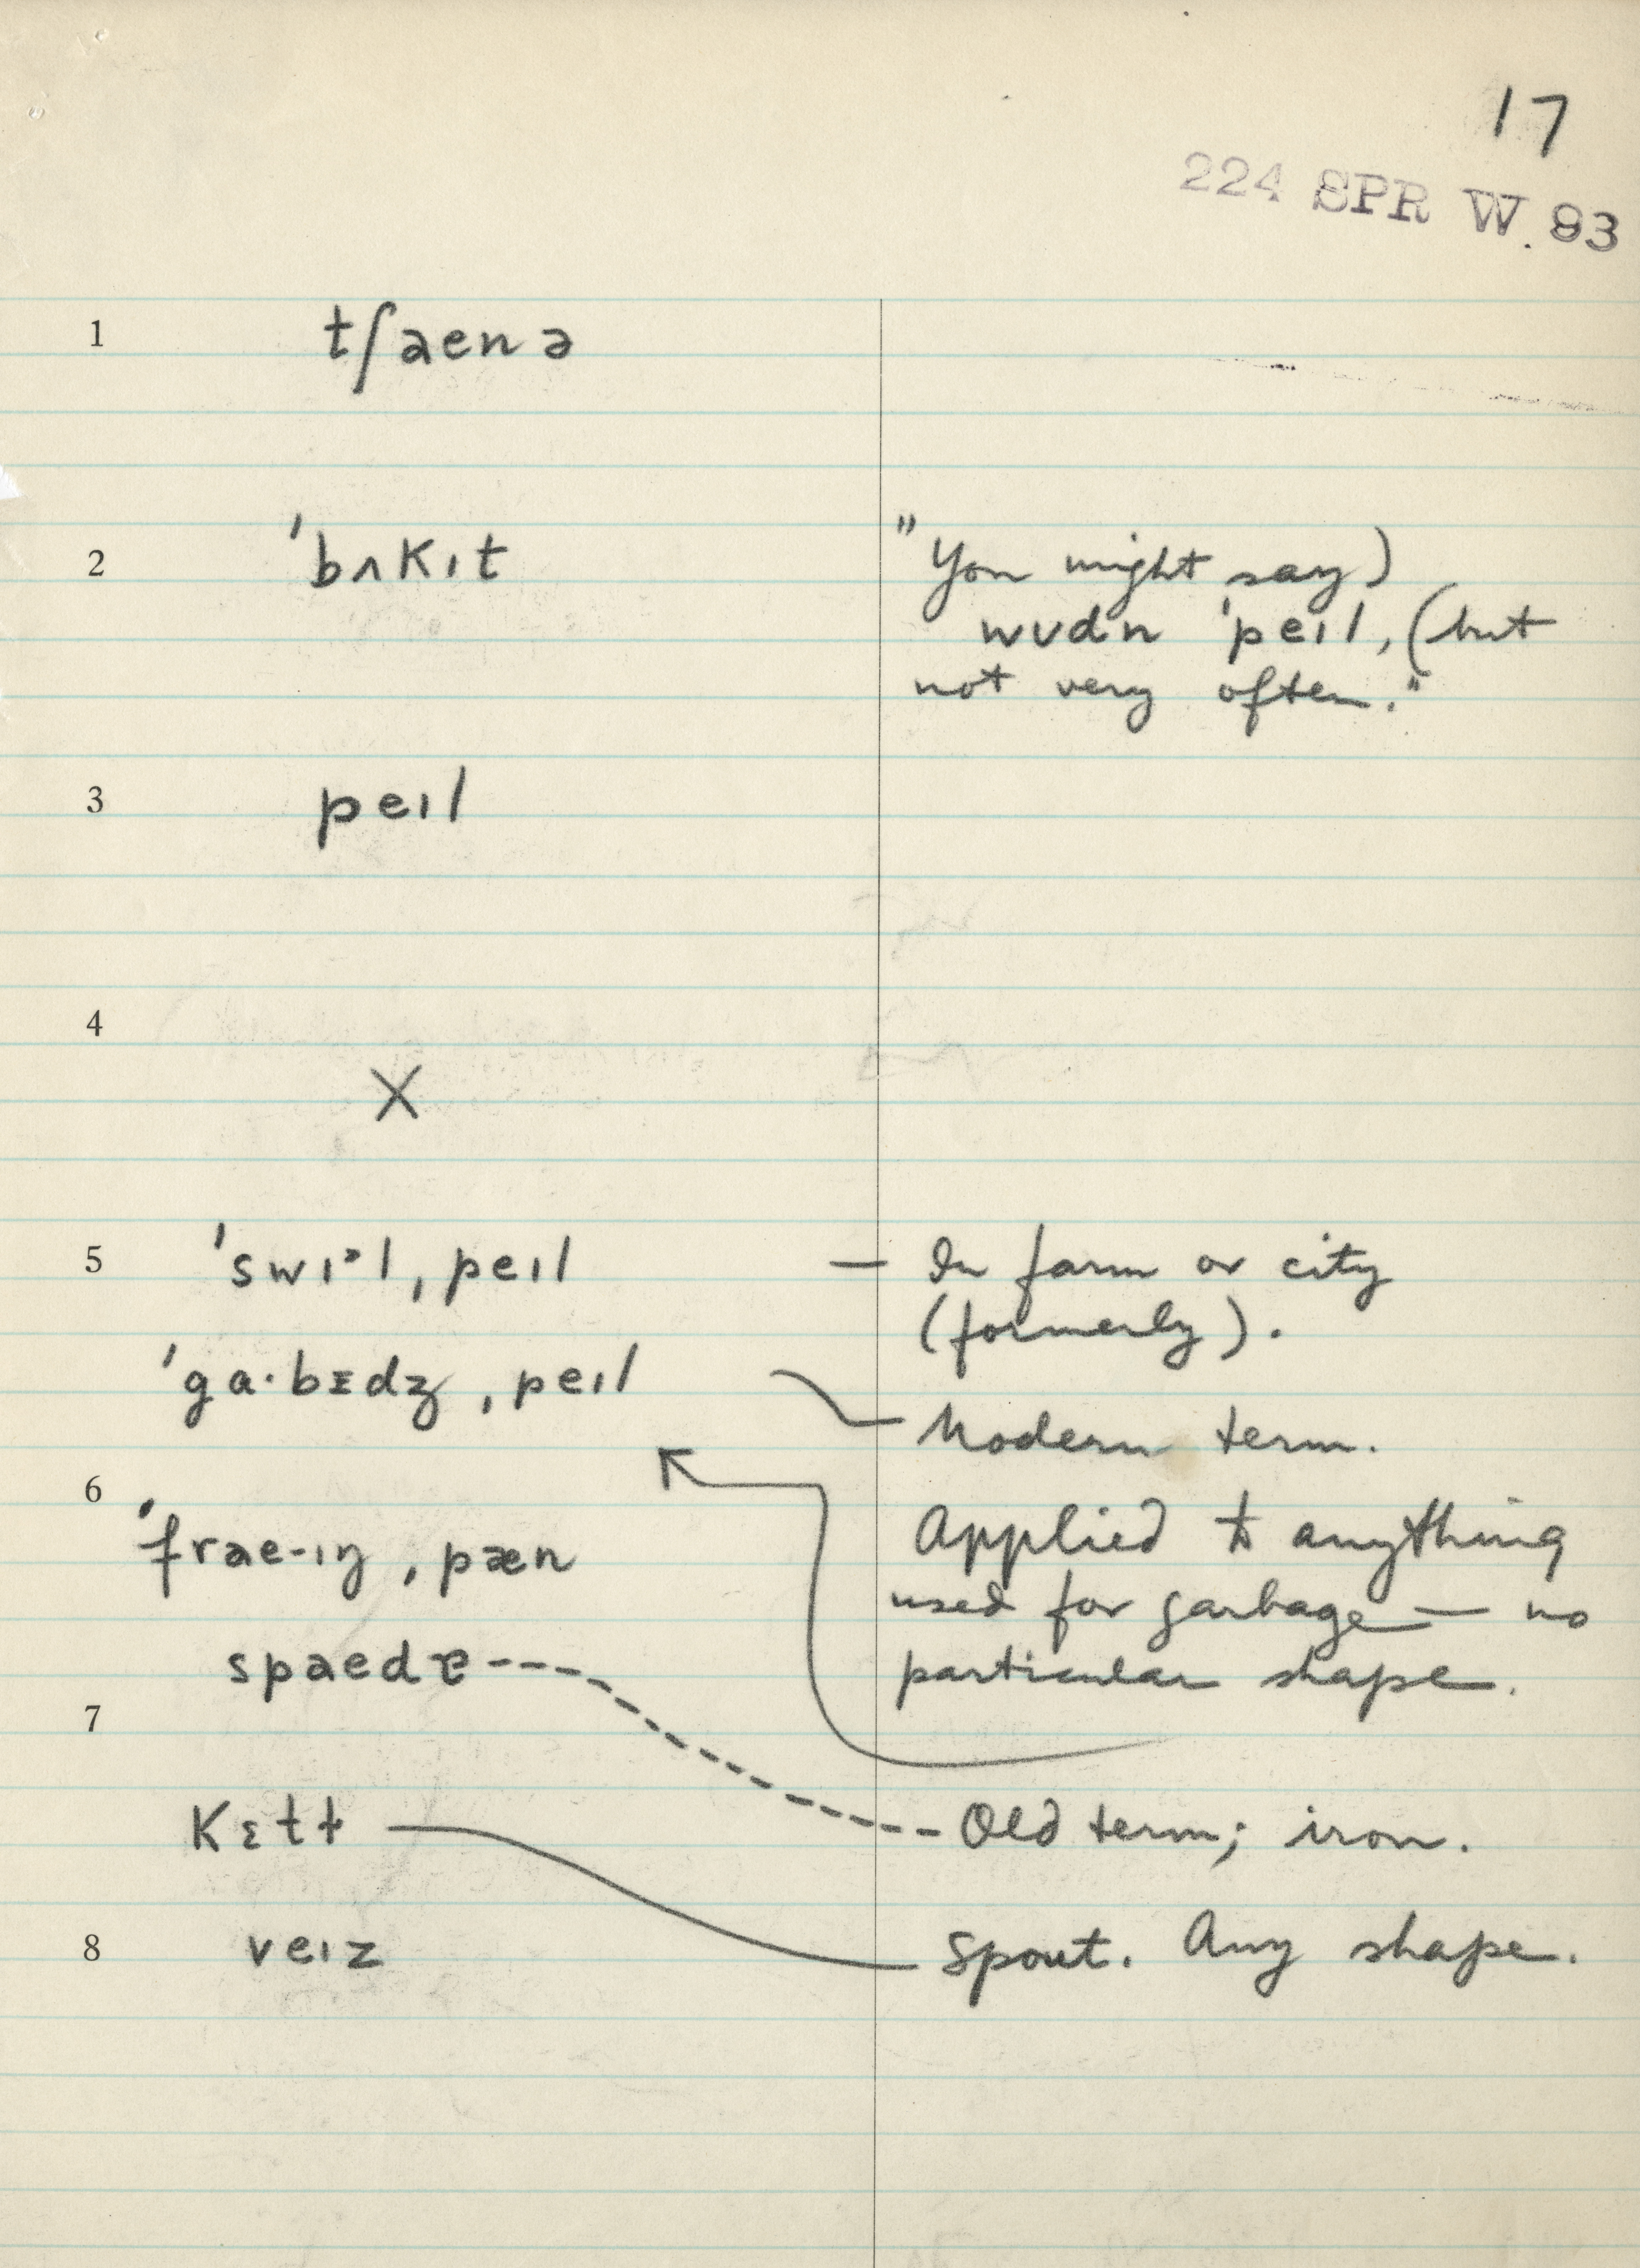 17
224 SPR W. 93
1 tʃænə
2 ˈbʌkɪt
"You might say)
wʊdn ˈpeɪl, (but
not very often."
3 peɪl
4
X
5 ˈswɪᵊl ˌpeɪl — In farm or city
(formerly).
ˈga·bᵻdʒ ˌpeɪl
Modern term.
6
Applied to anything
ˈfræ-ɪŋ ˌpæn
used for garbage — no
spædɐ
particular shape.
7
Kɛtɫ
Old term; iron.
8 veɪz
Spout. Any shape.